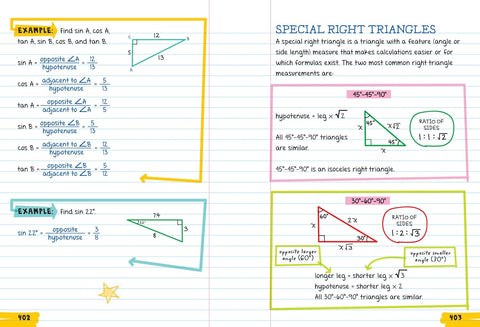 EXAMPLE: Find sin A, cos A,
tan A, sin B, cos B, and tan B.
C 12 B
5 13
A
sin A = opposite ∠A / hypotenuse = 12/13
cos A = adjacent to ∠A / hypotenuse = 5/13
tan A = opposite ∠A / adjacent to ∠A = 12/5
sin B = opposite ∠B / hypotenuse = 5/13
cos B = adjacent to ∠B / hypotenuse = 12/13
tan B = opposite ∠B / adjacent to ∠B = 5/12
EXAMPLE: Find sin 22°.
sin 22° = opposite / hypotenuse = 3/8
7.4
8 3
402
SPECIAL RIGHT TRIANGLES
A special right triangle is a triangle with a feature (angle or
side length) measure that makes calculations easier or for
which formulas exist. The two most common right triangle
measurements are:
45°-45°-90°
hypotenuse = leg × √2
All 45°-45°-90° triangles
are similar.
45°
x x√2
45°
x
RATIO OF
SIDES
1 : 1 : √2
45°-45°-90° is an isoceles right triangle.
30°-60°-90°
60°
x 2x
30°
x√3
RATIO OF
SIDES
1 : 2 : √3
opposite longer
angle (60°)
opposite smaller
angle (30°)
longer leg = shorter leg × √3
hypotenuse = shorter leg × 2
All 30°-60°-90° triangles are similar.
403